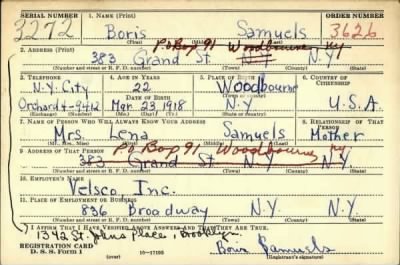 SERIAL NUMBER 1. NAME (Print) ORDER NUMBER
2272 Boris Samuels 3626
P.O. Box 91 Woodbourne, NY
2. ADDRESS (Print)
383 Grand St N.Y. N.Y.
(Number and street or R. F. D. number) (Town) (County) (State)
3. TELEPHONE 4. AGE IN YEARS 5. PLACE OF BIRTH 6. COUNTRY OF CITIZENSHIP
N.Y. City 22 Woodbourne
DATE OF BIRTH
Orchard 4-9412 Mar. 23 1918 N.Y. U.S.A.
(Exchange) (Number) (Mo.) (Day) (Yr.) (State or country)
7. NAME OF PERSON WHO WILL ALWAYS KNOW YOUR ADDRESS 8. RELATIONSHIP OF THAT PERSON
Mrs. Lena Samuels Mother
(Mr., Mrs., Miss) (First) (Middle) (Last)
P.O. Box 91 Woodbourne, NY
9. ADDRESS OF THAT PERSON
383 Grand St N.Y. N.Y.
(Number and street or R. F. D. number) (Town) (County) (State)
10. EMPLOYER'S NAME
Velsco, Inc.
11. PLACE OF EMPLOYMENT OR BUSINESS
836 Broadway N.Y. N.Y.
(Number and street or R. F. D. number) (Town) (County) (State)
I AFFIRM THAT I HAVE VERIFIED ABOVE ANSWERS AND THAT THEY ARE TRUE.
1392 St. Johns Place, Brooklyn
REGISTRATION CARD
D. S. S. FORM 1 16-17105 Boris Samuels
(over) (Registrant's signature)